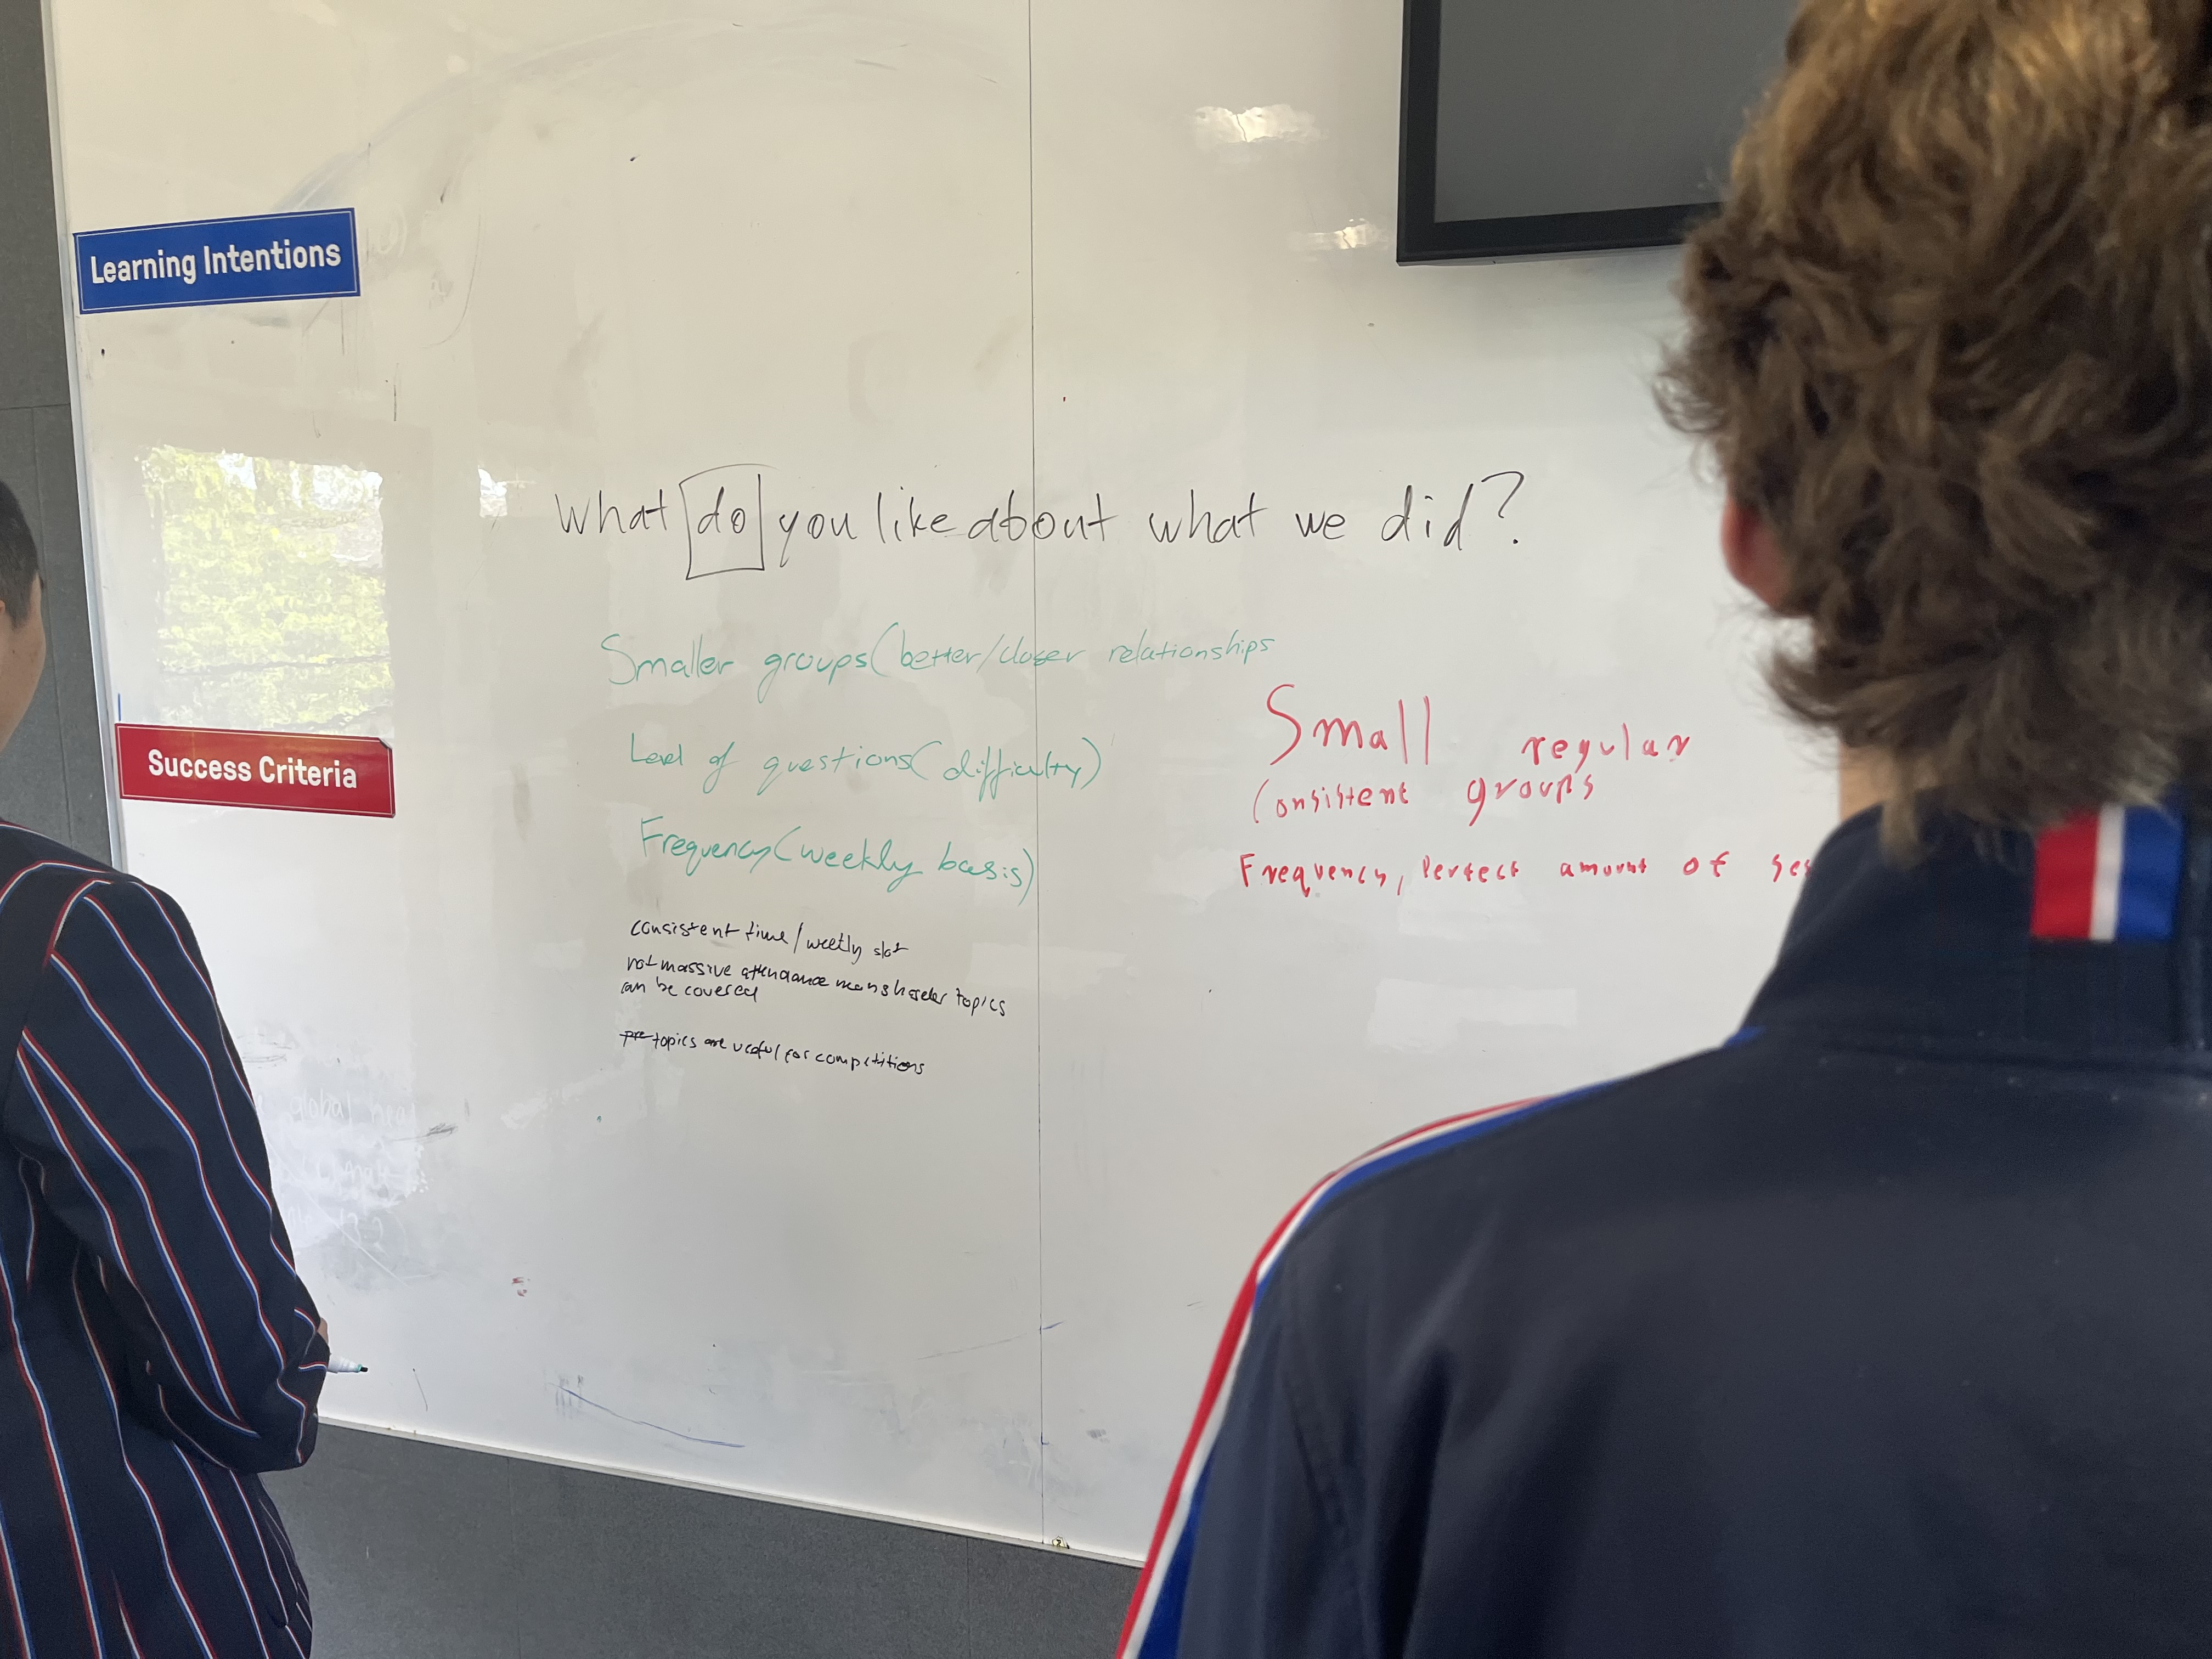 Learning Intentions
What do you like about what we did?
Smaller groups (better/closer relationships
Level of questions (difficulty)
Frequency (weekly basis)
consistent time/weekly slot
not massive attendance means harder topics
can be covered
topics are useful for competitions
Small regular
Consistent groups
Frequency, Perfect amount of
Success Criteria
global